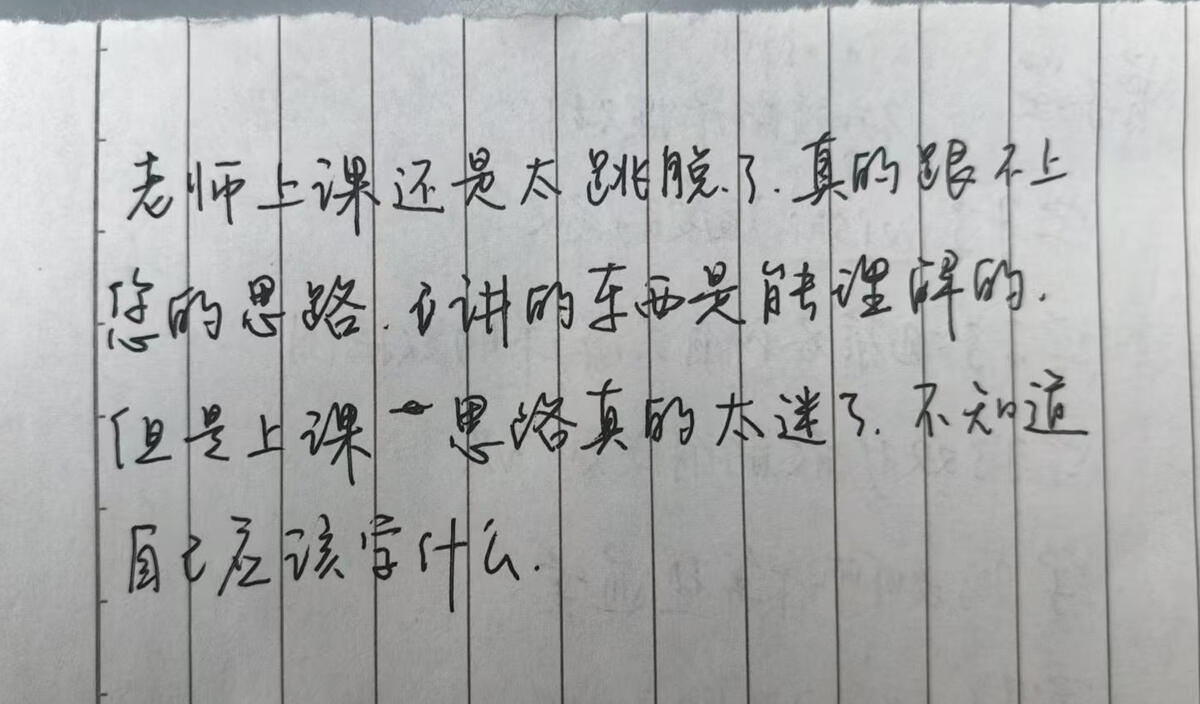 老师上课还是太跳脱了.真的跟不上
您的思路.讲的东西是能理解的.
但是上课思路真的太迷了.不知道
自己应该学什么.